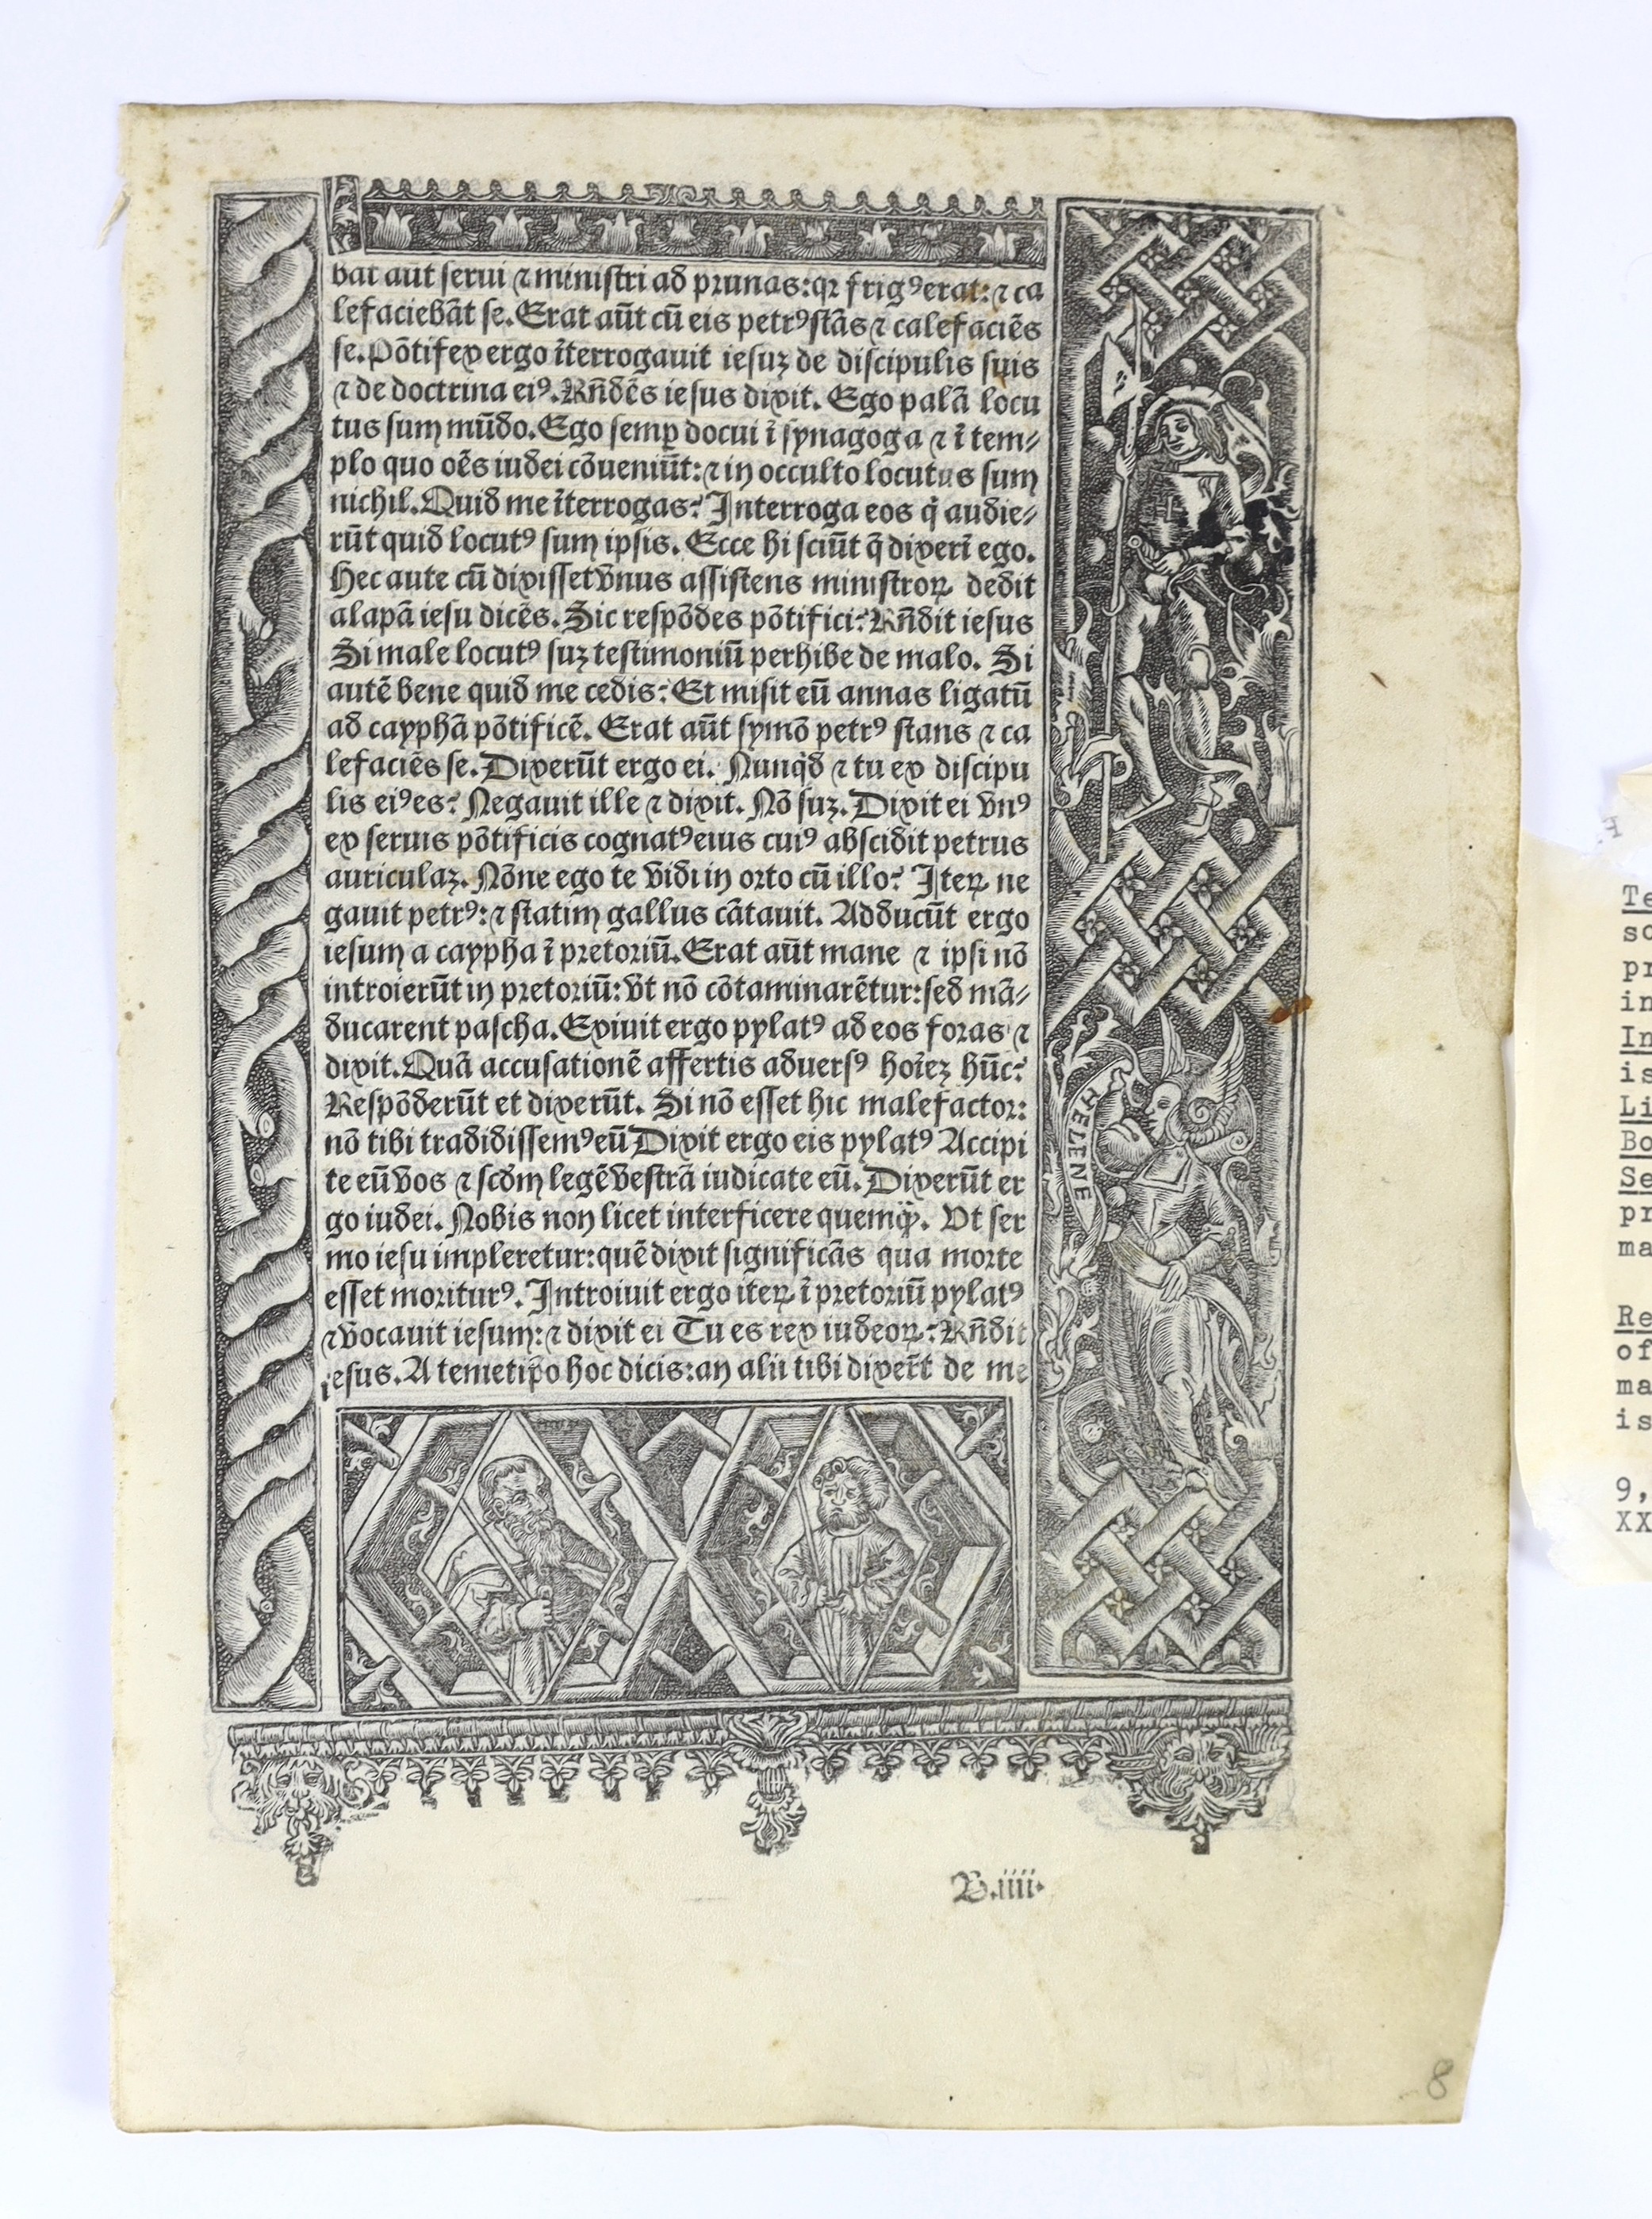 bat aut serui ⁊ ministri ad prunas: qꝛ frigꝰ erat: ⁊ ca
lefaciebāt se. Erat aūt cū eis petrꝰ stās ⁊ calefaciēs
se. Pōtifex ergo īterrogauit iesuꝫ de discipulis suis
⁊ de doctrina eiꝰ. Rn̄dēs iesus dixit. Ego palā locu
tus sum mūdo. Ego semꝑ docui ī synagoga ⁊ ī tem⸗
plo quo oēs iudei cōueniūt: ⁊ in occulto locutus sum
nichil. Quid me īterrogas? Interroga eos q̄ audie⸗
rūt quid locutꝰ sum ipsis. Ecce hi sciūt q̄ dixerī ego.
Hec aute cū dixisset vnus assistens ministroꝝ dedit
alapā iesu dicēs. Sic respōdes pōtifici? Rn̄dit iesus
Si male locutꝰ suꝫ testimoniū perhibe de malo. Si
autē bene quid me cedis? Et misit eū annas ligatū
ad cayphā pōtificē. Erat aūt symō petrꝰ stans ⁊ ca
lefaciēs se. Dixerūt ergo ei. Nunq̇d ⁊ tu ex discipu
lis eiꝰ es? Negauit ille ⁊ dixit. Nō suꝫ. Dixit ei vnꝰ
ex seruis pōtificis cognatꝰ eius cuiꝰ abscidit petrus
auriculaꝫ. Nōne ego te vidi in orto cū illo? Iteꝝ ne
gauit petrꝰ: ⁊ statim gallus cātauit. Adducūt ergo
iesum a caypha ī pretoriū. Erat aūt mane ⁊ ipsi nō
introierūt in pretoriū: vt nō cōtaminarētur: sed mā⸗
ducarent pascha. Exiuit ergo pylatꝰ ad eos foras ⁊
dixit. Quā accusationē affertis aduersꝰ hoīeꝫ hūc?
Respōderūt et dixerūt. Si nō esset hic malefactor:
nō tibi tradidissemꝰ eū Dixit ergo eis pylatꝰ Accipi
te eū vos ⁊ scd̄m legē vestrā iudicate eū. Dixerūt er
go iudei. Nobis non licet interficere quemq̄ꝫ. Vt ser
mo iesu impleretur: quē dixit significās qua morte
esset moriturꝰ. Introiuit ergo iteꝝ ī pretoriū pylatꝰ
⁊ vocauit iesum: ⁊ dixit ei Tu es rex iudeoꝝ? Rn̄dit
iesus. A temetip̄o hoc dicis: an alii tibi dixer̄t de me
HELENE
B.iiii.
8
Te
so
pr
in
In
is
Li
Bo
Se
pr
ma
Re
of
ma
is
9,
XX